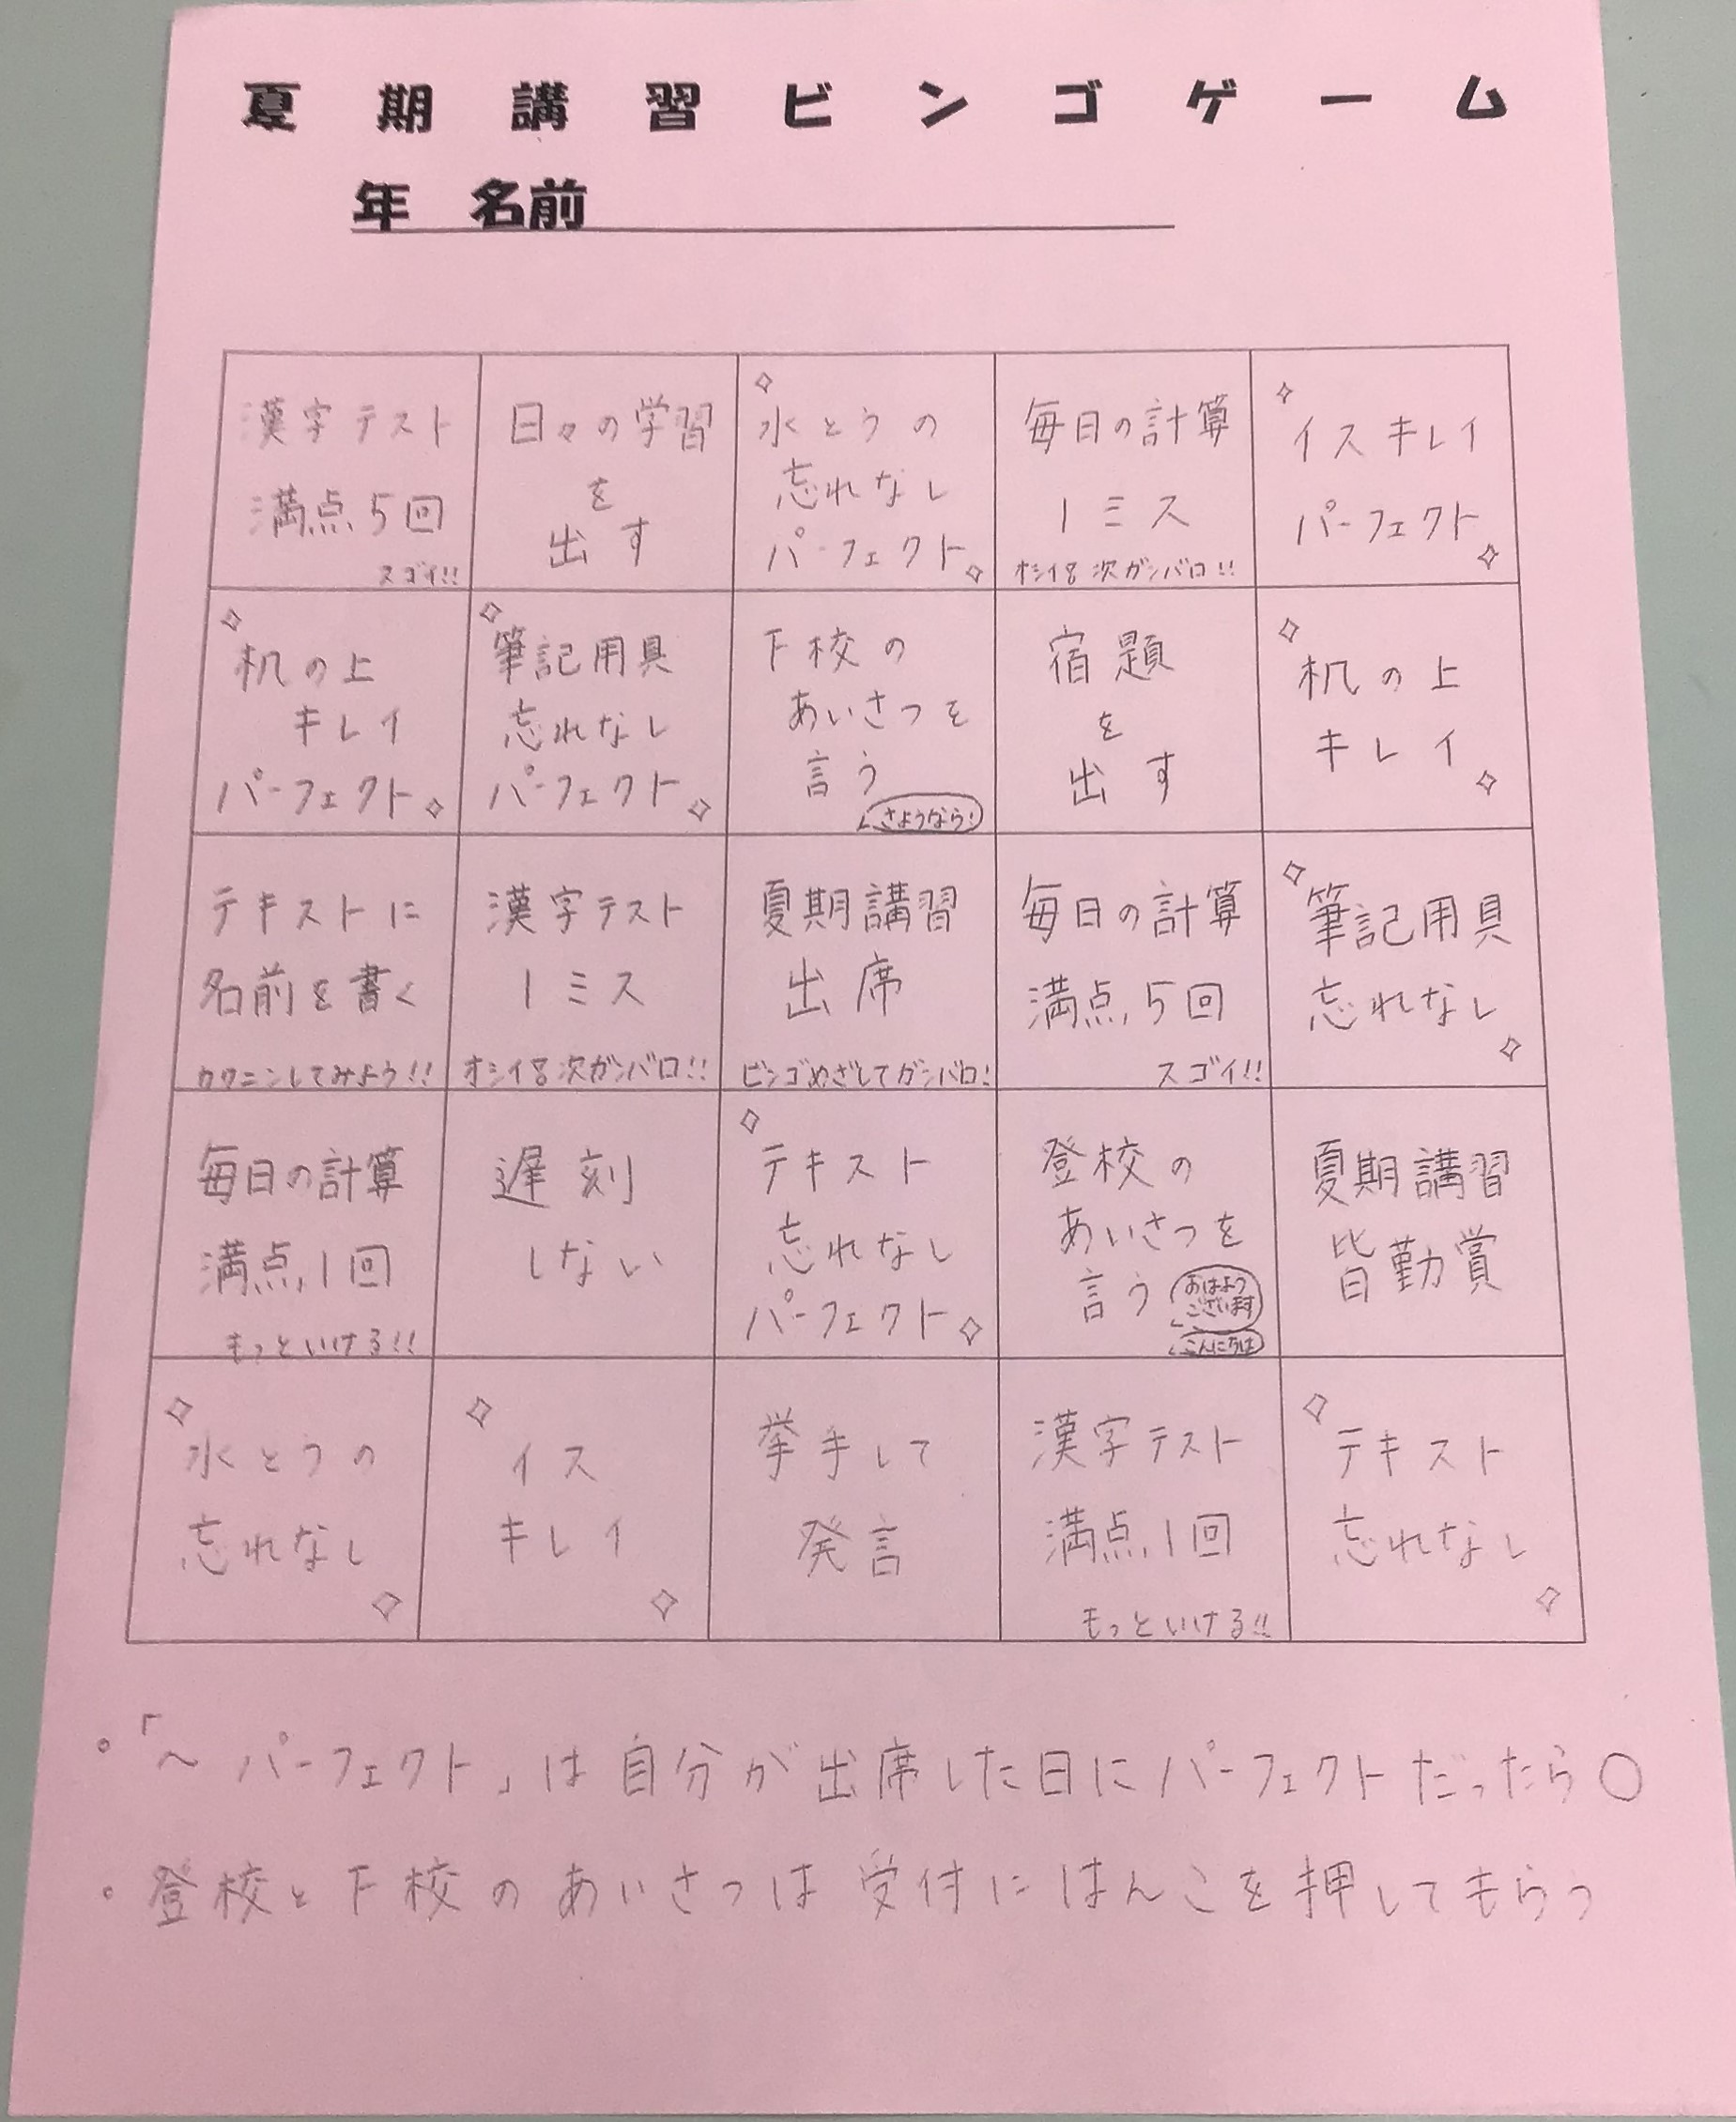 夏期講習ビンゴゲーム
年 名前
漢字テスト
満点5回
スゴイ!!
日々の学習
を
出す
水とうの
忘れなし
パーフェクト
毎日の計算
1ミス
オシイ 次ガンバロ!!
イスキレイ
パーフェクト
机の上
キレイ
パーフェクト
筆記用具
忘れなし
パーフェクト
下校の
あいさつを
言う
さようなら!
宿題
を
出す
机の上
キレイ
テキストに
名前を書く
カクニンしてみよう!!
漢字テスト
1ミス
オシイ 次ガンバロ!!
夏期講習
出席
ビンゴめざしてガンバロ!
毎日の計算
満点5回
スゴイ!!
筆記用具
忘れなし
毎日の計算
満点1回
もっといける!!
遅刻
しない
テキスト
忘れなし
パーフェクト
登校の
あいさつを
言う
おはよう
ございます
こんにちは
夏期講習
皆勤賞
水とうの
忘れなし
イス
キレイ
挙手して
発言
漢字テスト
満点1回
もっといける!!
テキスト
忘れなし
・「～パーフェクト」は自分が出席した日にパーフェクトだったら○
・登校と下校のあいさつは受付にはんこを押してもらう